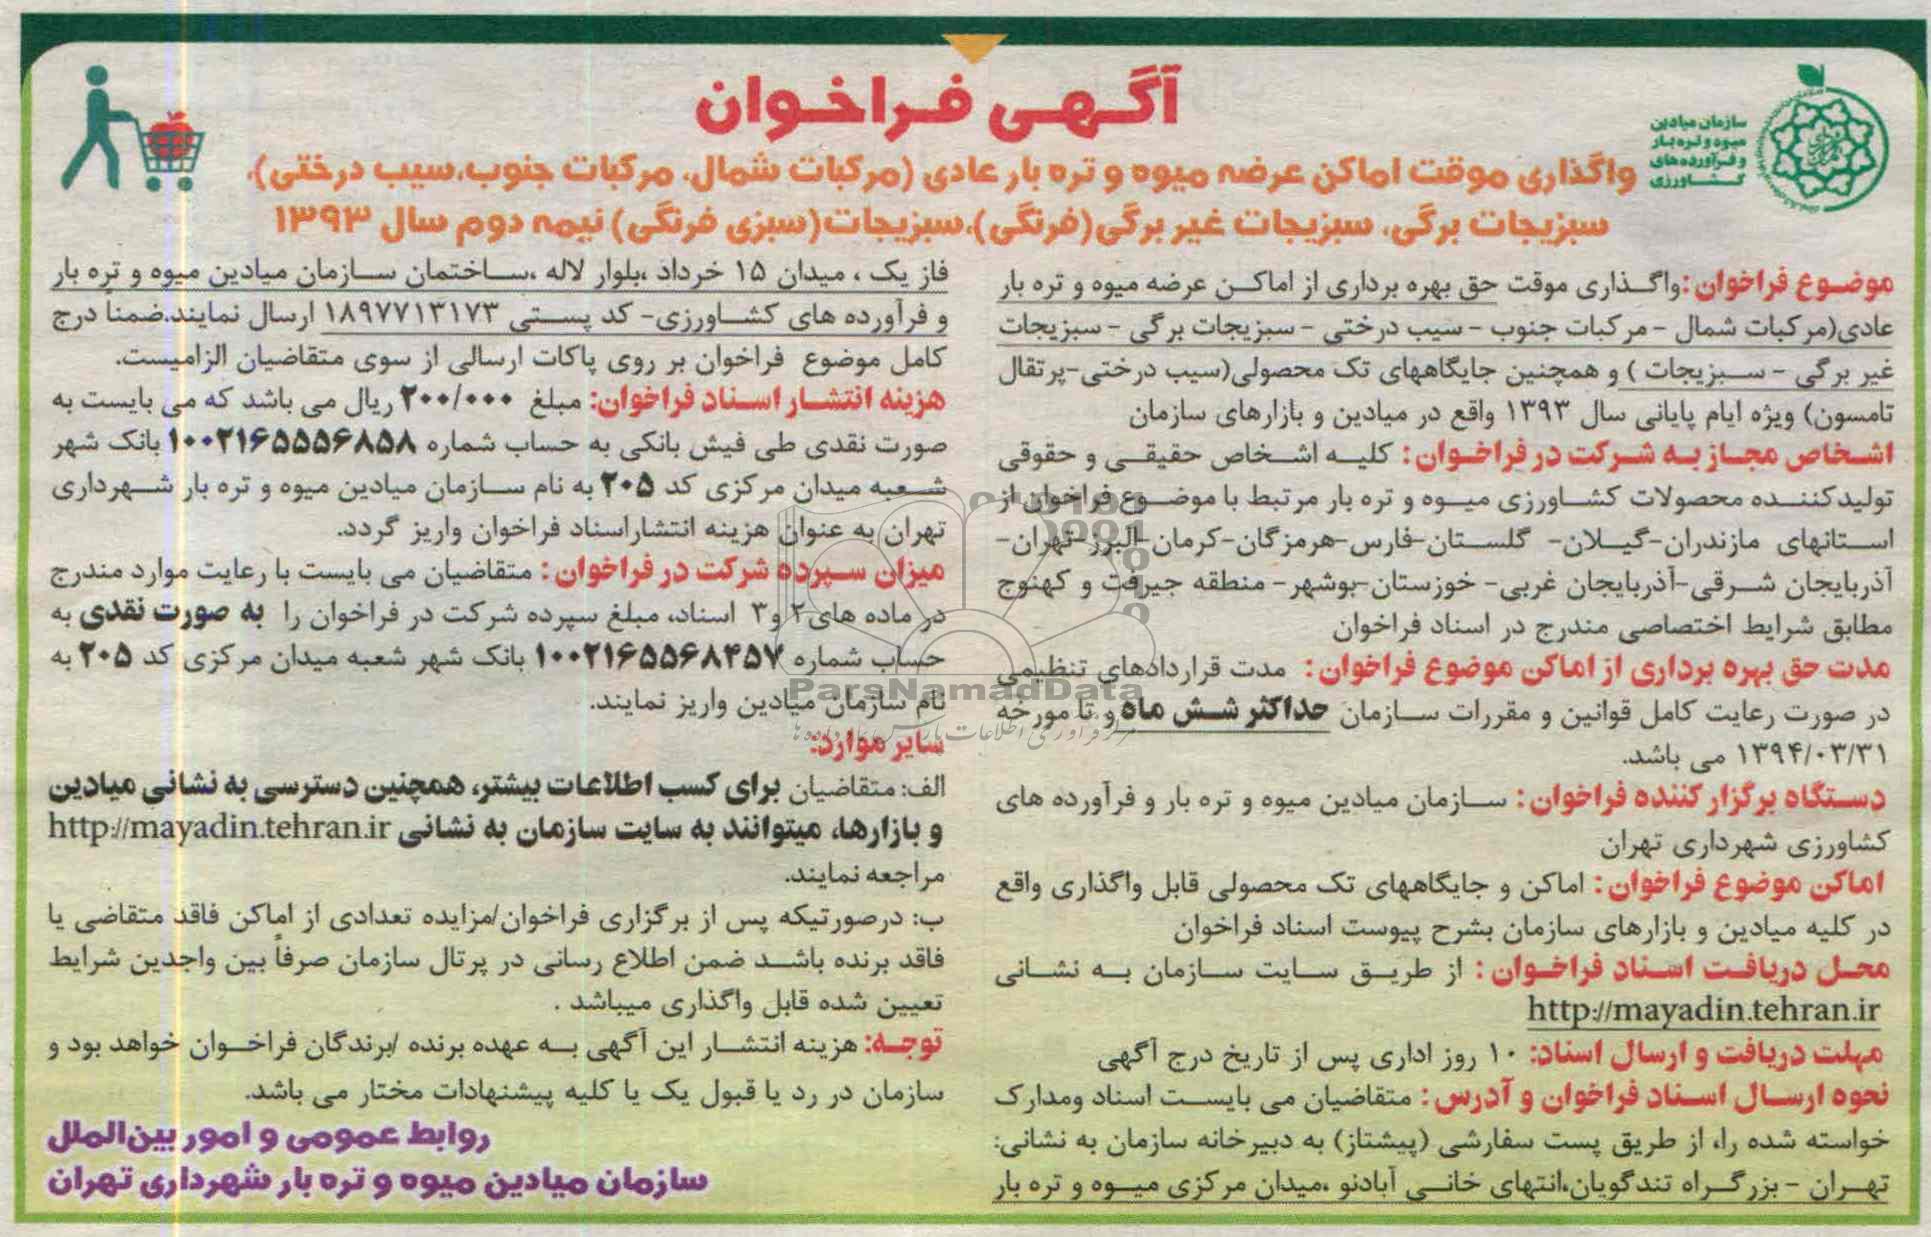 آگهی فراخوان
سازمان میادین
میوه و تره بار
و فرآورده های
کشاورزی
واگذاری موقت اماکن عرضه میوه و تره بار عادی (مرکبات شمال، مرکبات جنوب،سیب درختی)،
سبزیجات برگی، سبزیجات غیر برگی(فرنگی)،سبزیجات(سبزی فرنگی) نیمه دوم سال ۱۳۹۳
موضوع فراخوان :واگذاری موقت حق بهره برداری از اماکن عرضه میوه و تره بار
عادی(مرکبات شمال - مرکبات جنوب - سیب درختی - سبزیجات برگی - سبزیجات
غیر برگی - سبزیجات ) و همچنین جایگاههای تک محصولی(سیب درختی-پرتقال
تامسون) ویژه ایام پایانی سال ۱۳۹۳ واقع در میادین و بازارهای سازمان
اشخاص مجاز به شرکت در فراخوان : کلیه اشخاص حقیقی و حقوقی
تولیدکننده محصولات کشاورزی میوه و تره بار مرتبط با موضوع فراخوان از
استانهای مازندران-گیلان- گلستان-فارس-هرمزگان-کرمان-البرز-تهران-
آذربایجان شرقی-آذربایجان غربی- خوزستان-بوشهر- منطقه جیرفت و کهنوج
مطابق شرایط اختصاصی مندرج در اسناد فراخوان
مدت حق بهره برداری از اماکن موضوع فراخوان : مدت قراردادهای تنظیمی
در صورت رعایت کامل قوانین و مقررات سازمان حداکثر شش ماه و تا مورخه
۱۳۹۴/۰۳/۳۱ می باشد.
دستگاه برگزار کننده فراخوان : سازمان میادین میوه و تره بار و فرآورده های
کشاورزی شهرداری تهران
اماکن موضوع فراخوان : اماکن و جایگاههای تک محصولی قابل واگذاری واقع
در کلیه میادین و بازارهای سازمان بشرح پیوست اسناد فراخوان
محل دریافت اسناد فراخوان : از طریق سایت سازمان به نشانی
http://mayadin.tehran.ir
مهلت دریافت و ارسال اسناد: ۱۰ روز اداری پس از تاریخ درج آگهی
نحوه ارسال اسناد فراخوان و آدرس : متقاضیان می بایست اسناد ومدارک
خواسته شده را، از طریق پست سفارشی (پیشتاز) به دبیرخانه سازمان به نشانی:
تهران - بزرگراه تندگویان،انتهای خانی آبادنو ،میدان مرکزی میوه و تره بار
فاز یک ، میدان ۱۵ خرداد ،بلوار لاله ،ساختمان سازمان میادین میوه و تره بار
و فرآورده های کشاورزی- کد پستی ۱۸۹۷۷۱۳۱۷۳ ارسال نمایند.ضمناً درج
کامل موضوع فراخوان بر روی پاکات ارسالی از سوی متقاضیان الزامیست.
هزینه انتشار اسناد فراخوان: مبلغ ۲۰۰/۰۰۰ ریال می باشد که می بایست به
صورت نقدی طی فیش بانکی به حساب شماره ۱۰۰۲۱۶۵۵۵۶۸۵۸ بانک شهر
شعبه میدان مرکزی کد ۲۰۵ به نام سازمان میادین میوه و تره بار شهرداری
تهران به عنوان هزینه انتشاراسناد فراخوان واریز گردد.
میزان سپرده شرکت در فراخوان : متقاضیان می بایست با رعایت موارد مندرج
در ماده های۲ و۳ اسناد، مبلغ سپرده شرکت در فراخوان را به صورت نقدی به
حساب شماره ۱۰۰۲۱۶۵۵۶۸۴۵۷ بانک شهر شعبه میدان مرکزی کد ۲۰۵ به
نام سازمان میادین واریز نمایند.
سایر موارد:
الف: متقاضیان برای کسب اطلاعات بیشتر، همچنین دسترسی به نشانی میادین
و بازارها، میتوانند به سایت سازمان به نشانی http://mayadin.tehran.ir
مراجعه نمایند.
ب: درصورتیکه پس از برگزاری فراخوان/مزایده تعدادی از اماکن فاقد متقاضی یا
فاقد برنده باشد ضمن اطلاع رسانی در پرتال سازمان صرفاً بین واجدین شرایط
تعیین شده قابل واگذاری میباشد .
توجه: هزینه انتشار این آگهی به عهده برنده /برندگان فراخوان خواهد بود و
سازمان در رد یا قبول یک یا کلیه پیشنهادات مختار می باشد.
روابط عمومی و امور بین‌الملل
سازمان میادین میوه و تره بار شهرداری تهران
ParsNamadData